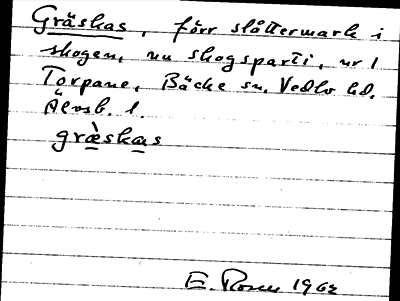 Gräskas, förr slåttermark i
skogen, nu skogsparti, nr 1
Torpane, Bäcke sn. Vedbo hd.
Älvsb. l.
græ̀skas
E. Rosen 1962